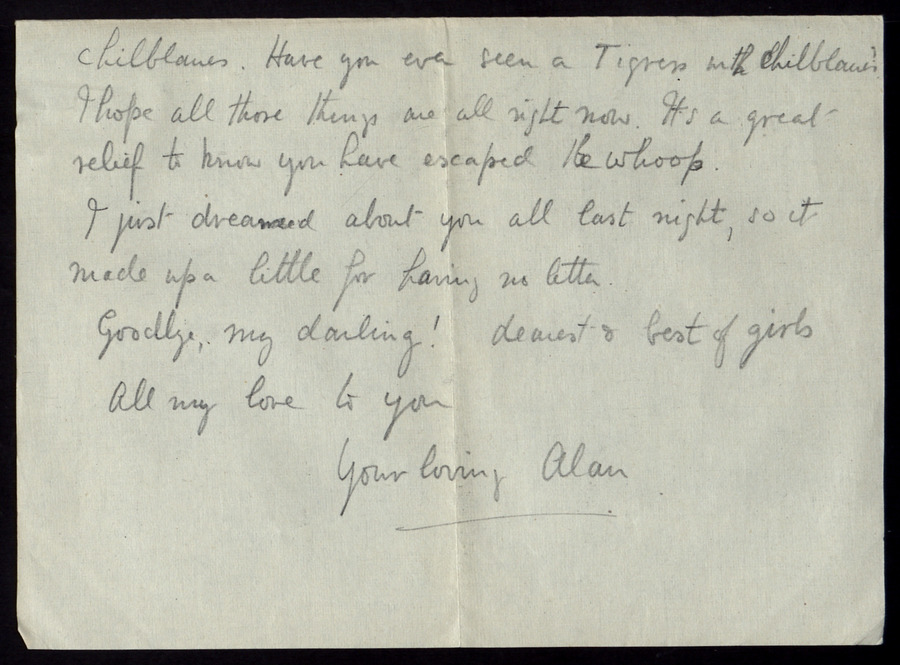 chilblanes. Have you ever seen a Tigress with Chilblanes.
I hope all those things are all right now. It's a great
relief to know you have escaped the whoop.
I just dreamed about you all last night, so it
made up a little for having no letter.
Goodbye, my darling! dearest & best of girls
All my love to you
Your loving Alan